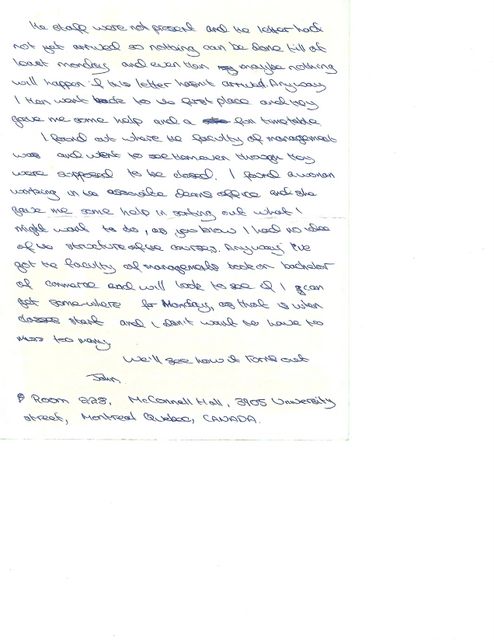 the staff were not present and the letter had
not yet arrived so nothing can be done till at
least monday and even then maybe nothing
will happen if this letter hasn't arrived. Anyway
I then went back to the first place and they
gave me some help and a for timetable
I found out where the faculty of management
was and went to see them even though they
were supposed to be closed. I found a woman
working in the associate deans office and she
gave me some help in sorting out what I
might want to do, as you know I had no idea
of the structure of the courses. Anyway I've
got the faculty of managements book on bachelor
of commerce and will look to see if I can
get somewhere for Monday, as that is when
classes start and I don't want to have to
miss too many
We'll see how it turns out
John.
Room 228, McConnell Hall, 3905 University
street, Montreal Quebec, CANADA.